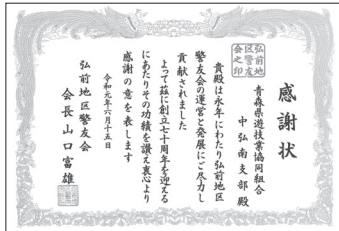 感謝状
青森県遊技業協同組合
中弘南支部殿
貴殿は永年にわたり弘前地区
警友会の運営と発展にご尽力し
貢献されました
よって茲に創立七十周年を迎える
にあたりその功績を讃え衷心より
感謝の意を表します
令和元年六月十五日
弘前地区警友会
会長山口富雄
弘前地
区警友
会之印